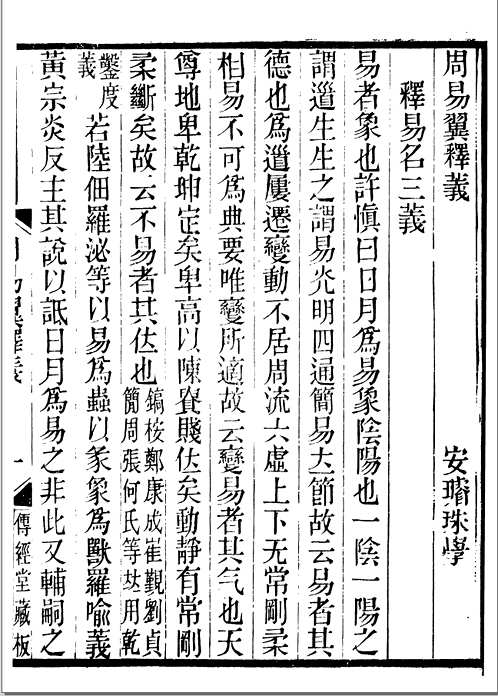 周易翼釋義
安璿珠學
釋易名三義
易者象也許慎曰日月爲易象陰陽也一陰一陽之
謂道生生之謂易光明四通簡易大節故云易者其
德也爲道屢遷變動不居周流六虛上下无常剛柔
相易不可爲典要唯變所適故云變易者其气也天
尊地卑乾坤定矣卑高以陳貴賤位矣動靜有常剛
柔斷矣故云不易者其位也
鎬桉鄭康成崔覲劉貞
簡周張何氏等𠀤用乾
鑿度
義
若陸佃羅泌等以易爲蟲以彖象爲獸羅喻義
黃宗炎反主其說以詆日月爲易之非此又輔嗣之
一
傳經堂藏板